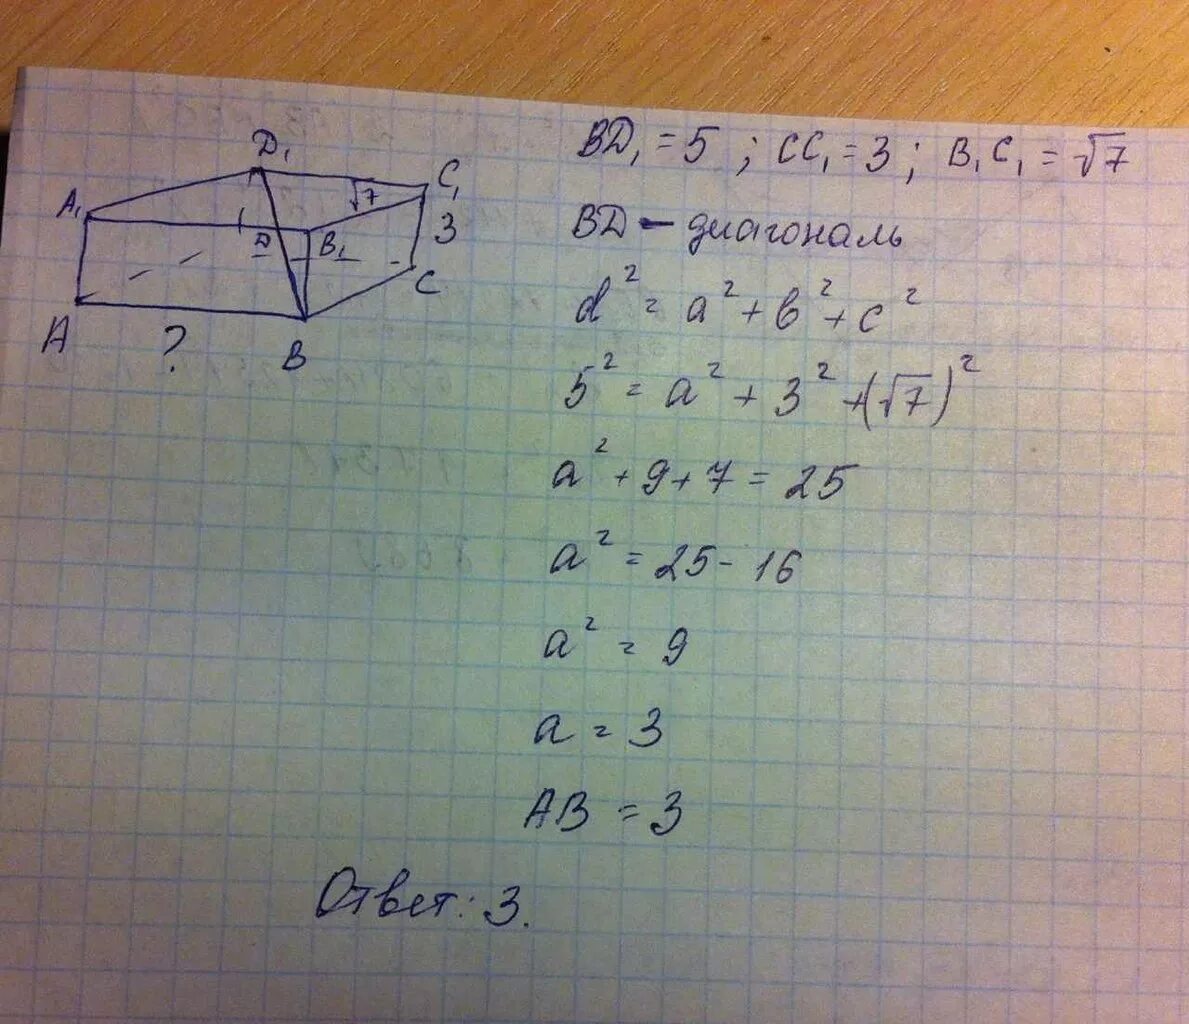 D₁
C₁
A₁
√7
3
D
B₁
C
A
?
B
BD₁ = 5 ; CC₁ = 3 ; B₁C₁ = √7
BD — диагональ
d² = a² + b² + c²
5² = a² + 3² + (√7)²
a² + 9 + 7 = 25
a² = 25 - 16
a² = 9
a = 3
AB = 3
Ответ: 3.